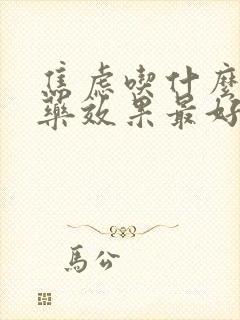 焦虑喫什麽
藥效果最好
馬公